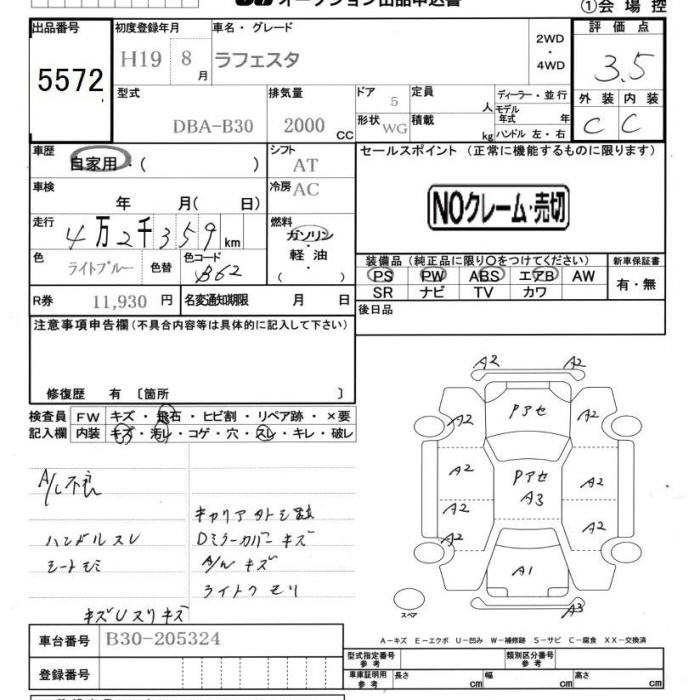 オークション出品申込書
①会場控
出品番号 初度登録年月 車名・グレード 評価点
5572 H19 8月 ラフェスタ 2WD・4WD 3.5
型式 排気量 ドア 定員 ディーラー・並行 外装 内装
DBA-B30 2000 CC 5 人 モデル年式 年 C C
形状 WG 積載 kg ハンドル 左・右
車歴 自家用・( ) シフト AT セールスポイント (正常に機能するものに限ります)
車検 年 月( 日) 冷房 AC
NOクレーム・売切
走行 4万2千359km 燃料 ガソリン・軽油・( )
色 ライトブルー 色替 色コード B62
装備品(純正品に限り○をつけてください) 新車保証書
PS PW ABS エアB AW 有・無
SR ナビ TV カワ
R券 11,930 円 名変通知期限 月 日 後日品
注意事項申告欄(不具合内容等は具体的に記入して下さい)
修復歴 有 〔箇所 〕
検査員記入欄 FW キズ・飛石・ヒビ割・リペア跡・×要
内装 キズ・汚レ・コゲ・穴・スレ・キレ・破レ
A/C不良
キャリアタトシ
ハンドルスレ Dミラーカバーキズ
シートモミ A/Wキズ
ライトクモリ
キズUスリキズ
A2 A2
A2 Pアセ A2
A2 Pアセ A3 A2
A2 A2
A1
スペア A3
A-キズ E-エクボ U-凹み W-補修跡 S-サビ C-腐食 XX-交換済
車台番号 B30-205324
型式指定番号 参考 類別区分番号 参考
登録番号 車庫証明用 参考 長さ cm 幅 cm 高さ cm